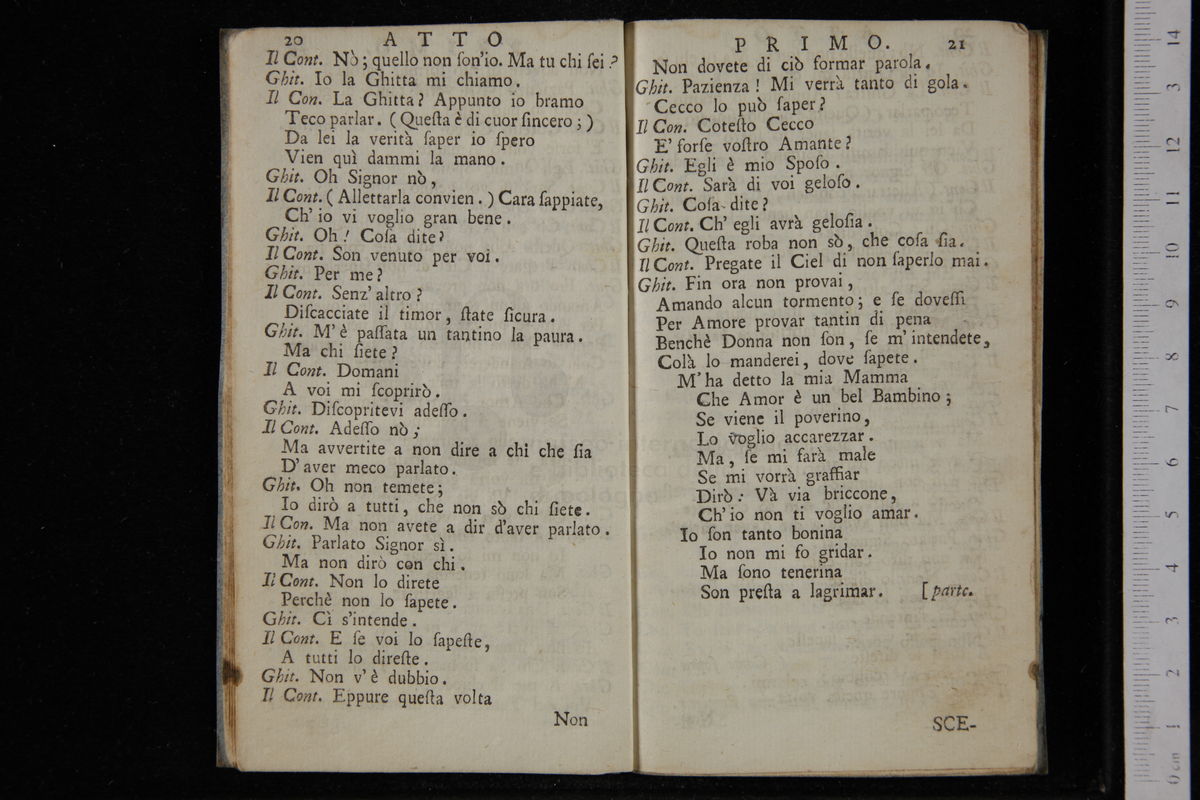 20 ATTO
Il Cont. Nò; quello non ſon'io. Ma tu chi ſei?
Ghit. Io la Ghitta mi chiamo.
Il Con. La Ghitta? Appunto io bramo
Teco parlar. (Queſta è di cuor ſincero;)
Da lei la verità ſaper io ſpero
Vien quì dammi la mano.
Ghit. Oh Signor nò,
Il Cont. (Allettarla convien.) Cara ſappiate,
Ch' io vi voglio gran bene.
Ghit. Oh! Coſa dite?
Il Cont. Son venuto per voi.
Ghit. Per me?
Il Cont. Senz' altro?
Diſcacciate il timor, ſtate ſicura.
Ghit. M' è paſſata un tantino la paura.
Ma chi ſiete?
Il Cont. Domani
A voi mi ſcoprirò.
Ghit. Diſcopritevi adeſſo.
Il Cont. Adeſſo nò;
Ma avvertite a non dire a chi che ſia
D' aver meco parlato.
Ghit. Oh non temete;
Io dirò a tutti, che non sò chi ſiete.
Il Con. Ma non avete a dir d'aver parlato.
Ghit. Parlato Signor sì.
Ma non dirò con chi.
Il Cont. Non lo direte
Perchè non lo ſapete.
Ghit. Cì s'intende.
Il Cont. E ſe voi lo ſapeſte,
A tutti lo direſte.
Ghit. Non v' è dubbio.
Il Cont. Eppure queſta volta
Non
PRIMO. 21
Non dovete di ciò formar parola.
Ghit. Pazienza! Mi verrà tanto di gola.
Cecco lo può ſaper?
Il Con. Coteſto Cecco
E' forſe voſtro Amante?
Ghit. Egli è mio Spoſo.
Il Cont. Sarà di voi geloſo.
Ghit. Coſa dite?
Il Cont. Ch' egli avrà geloſia.
Ghit. Queſta roba non sò, che coſa ſia.
Il Cont. Pregate il Ciel di non ſaperlo mai.
Ghit. Fin ora non provai,
Amando alcun tormento; e ſe doveſſi
Per Amore provar tantin di pena
Benchè Donna non ſon, ſe m' intendete,
Colà lo manderei, dove ſapete.
M' ha detto la mia Mamma
Che Amor è un bel Bambino;
Se viene il poverino,
Lo voglio accarezzar.
Ma, ſe mi farà male
Se mi vorrà graffiar
Dirò: Và via briccone,
Ch' io non ti voglio amar.
Io ſon tanto bonina
Io non mi fo gridar.
Ma ſono tenerina
Son preſta a lagrimar. [parte.
SCE-